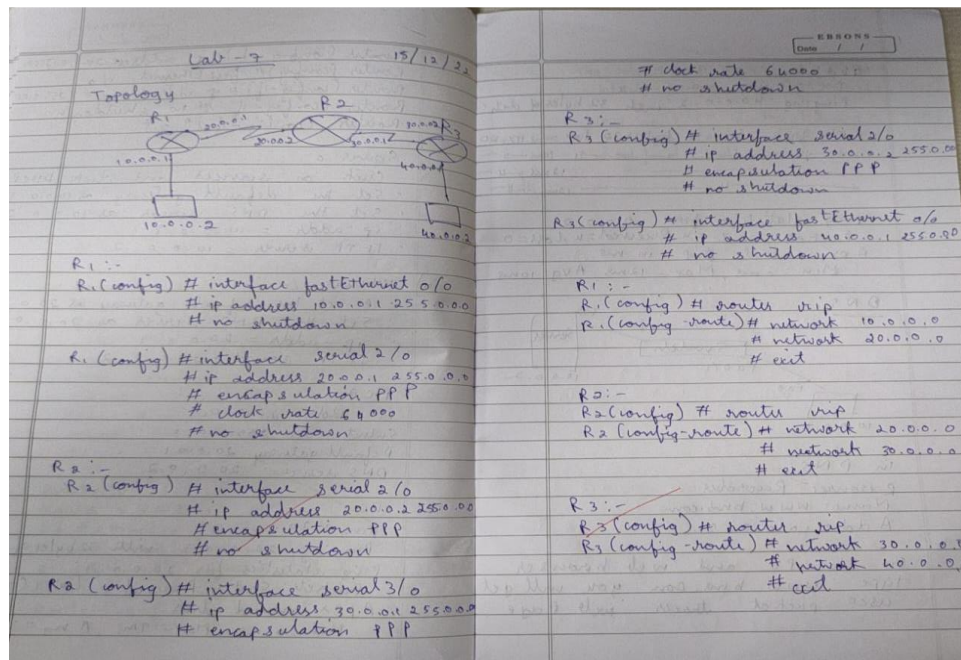 Lab - 7 15/12/22
Topology
R1 R2 R3
20.0.0.1 20.0.0.2 30.0.0.1 30.0.0.2
10.0.0.1 40.0.0.1
10.0.0.2 40.0.0.2
R1 :-
R1 (config) # interface fastEthernet 0/0
# ip address 10.0.0.1 255.0.0.0
# no shutdown
R1 (config) # interface serial 2/0
# ip address 20.0.0.1 255.0.0.0
# encapsulation PPP
# clock rate 64000
# no shutdown
R2 :-
R2 (config) # interface serial 2/0
# ip address 20.0.0.2 255.0.0.0
# encapsulation PPP
# no shutdown
R2 (config) # interface serial 3/0
# ip address 30.0.0.1 255.0.0.0
# encapsulation PPP
EBSONS
Date / /
# clock rate 64000
# no shutdown
R3 :-
R3 (config) # interface serial 2/0
# ip address 30.0.0.2 255.0.00
# encapsulation PPP
# no shutdown
R3 (config) # interface fastEthernet 0/0
# ip address 40.0.0.1 255.0.00
# no shutdown
R1 :-
R1 (config) # router rip
R1 (config-route) # network 10.0.0.0
# network 20.0.0.0
# exit
R2 :-
R2 (config) # router rip
R2 (config-route) # network 20.0.0.0
# network 30.0.0.0
# exit
R3 :-
R3 (config) # router rip
R3 (config-route) # network 30.0.0.
# network 40.0.0.
# exit